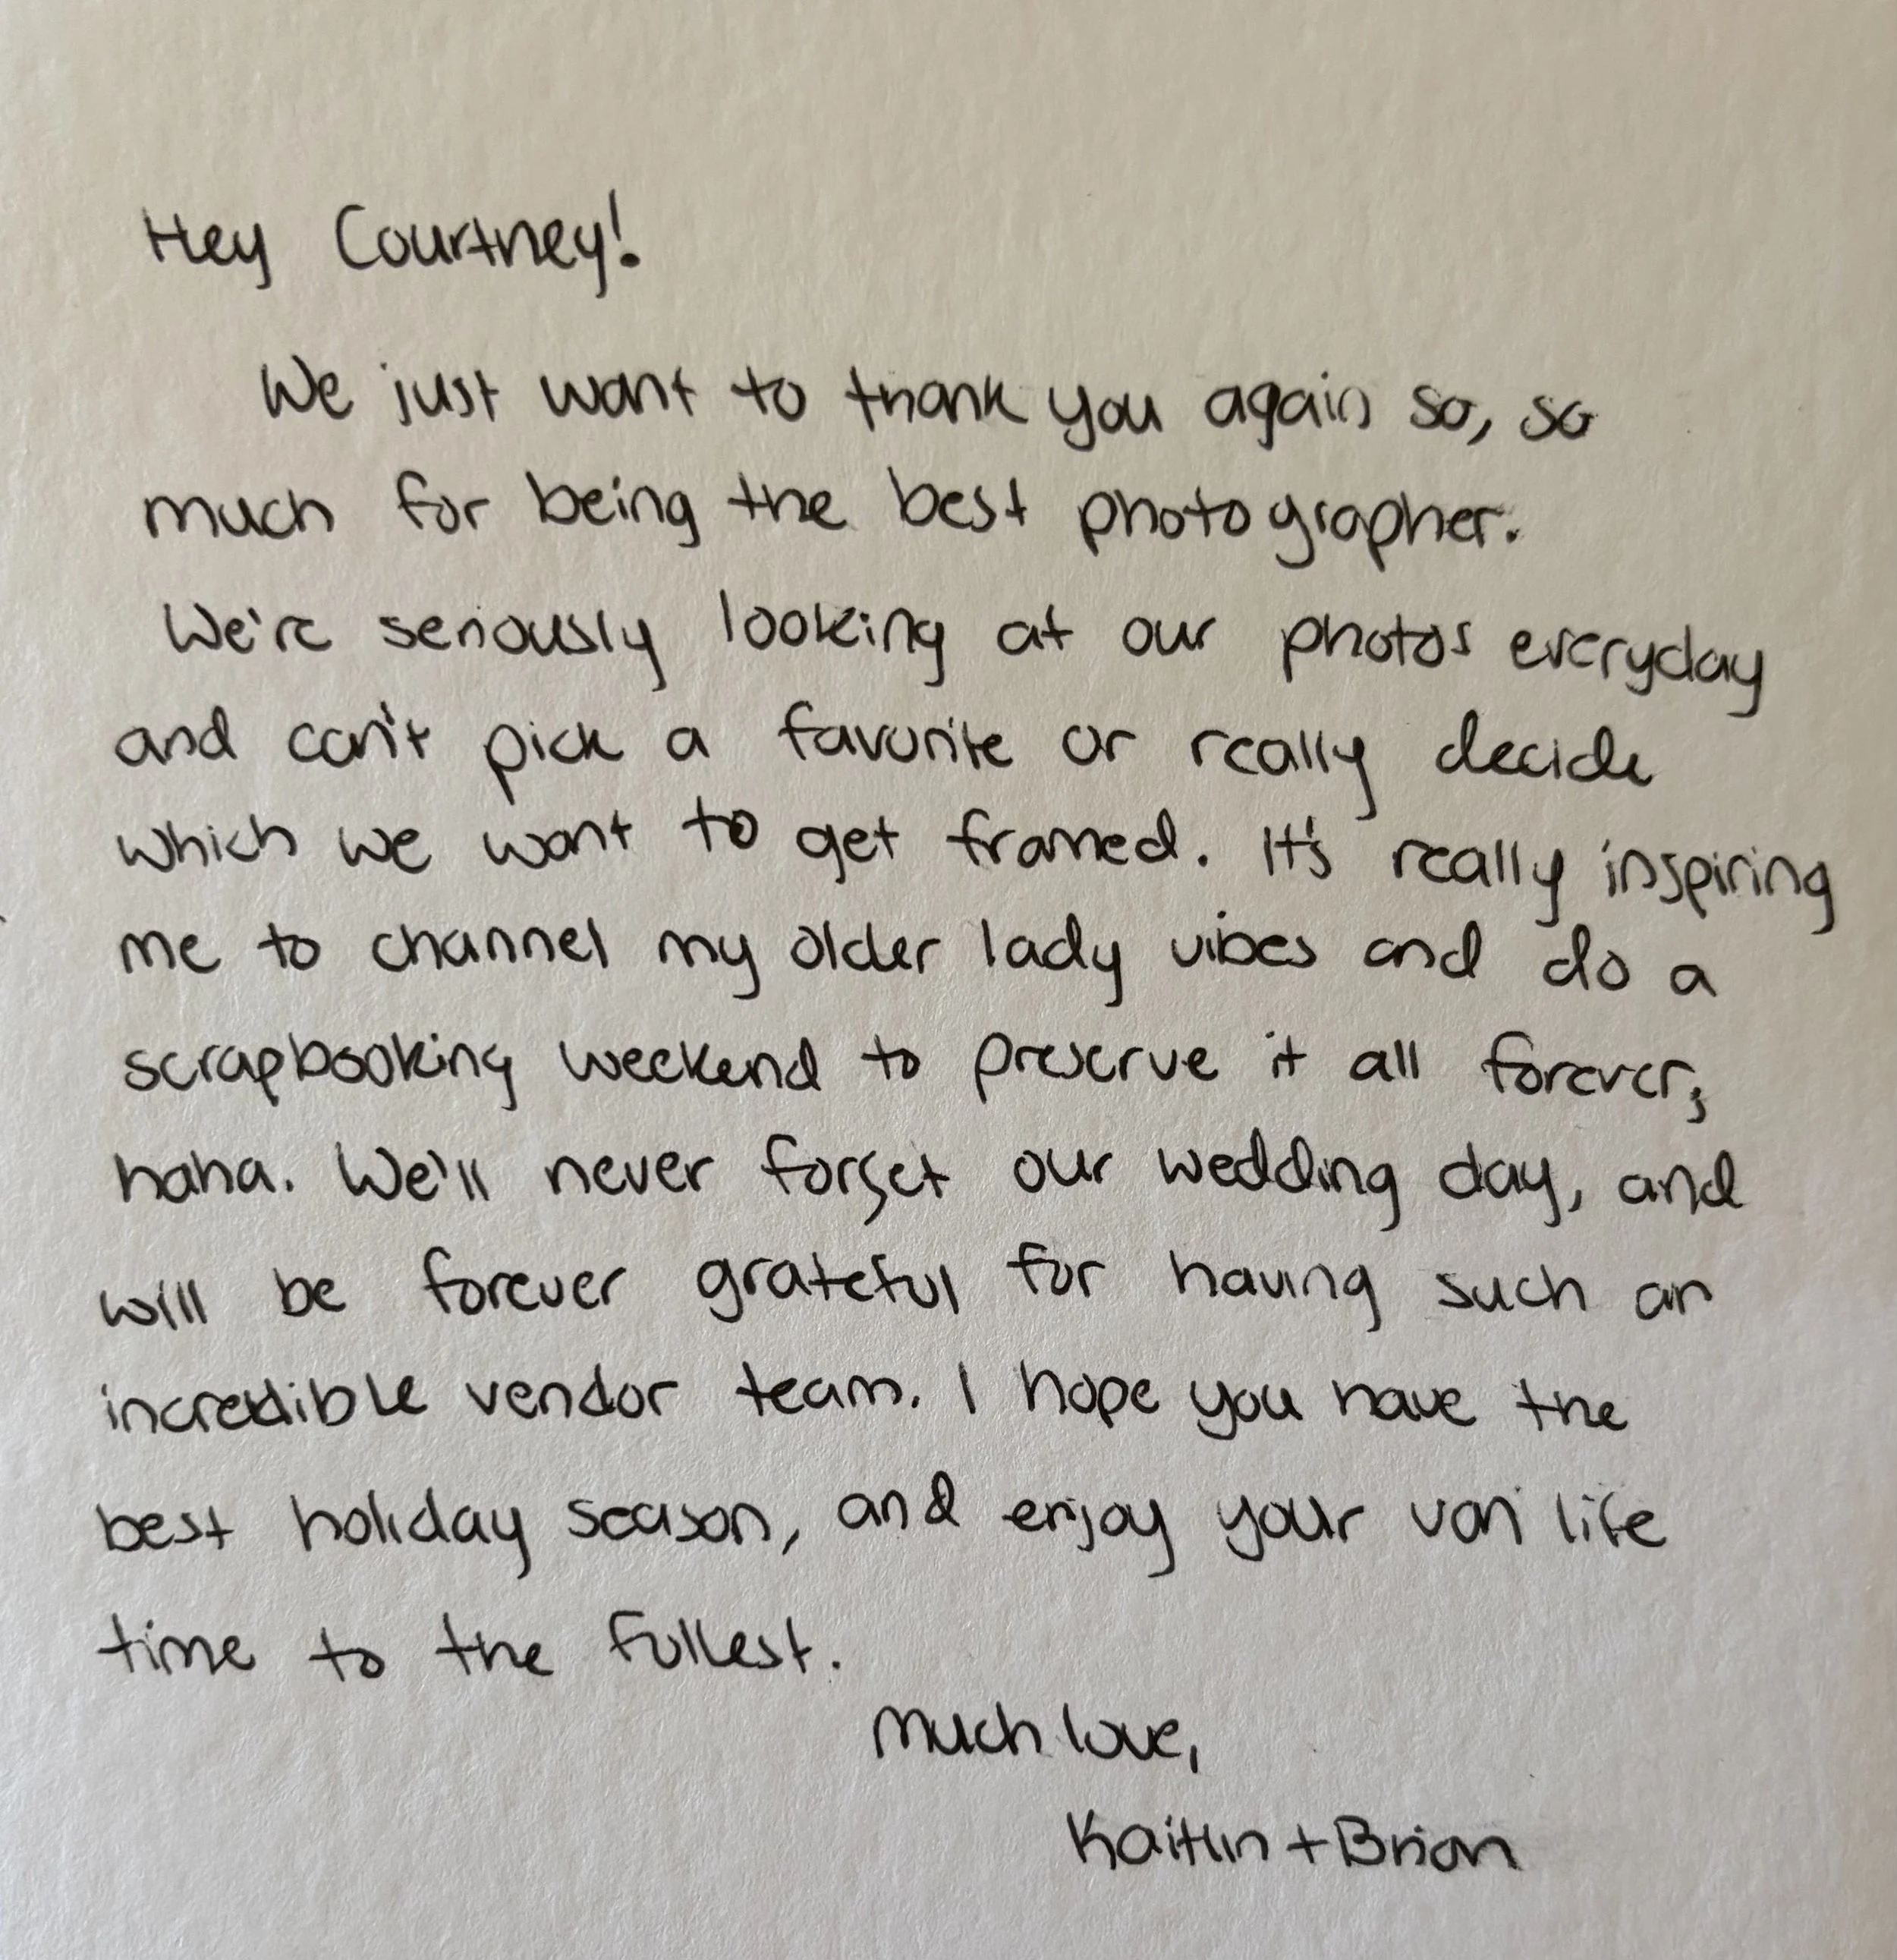 Hey Courtney!
We just want to thank you again so, so
much for being the best photographer.
We're seriously looking at our photos everyday
and can't pick a favorite or really decide
which we want to get framed. It's really inspiring
me to channel my older lady vibes and do a
scrapbooking weekend to preserve it all forever,
haha. We'll never forget our wedding day, and
will be forever grateful for having such an
incredible vendor team. I hope you have the
best holiday season, and enjoy your van life
time to the fullest.
Much love,
Kaitlin + Brian